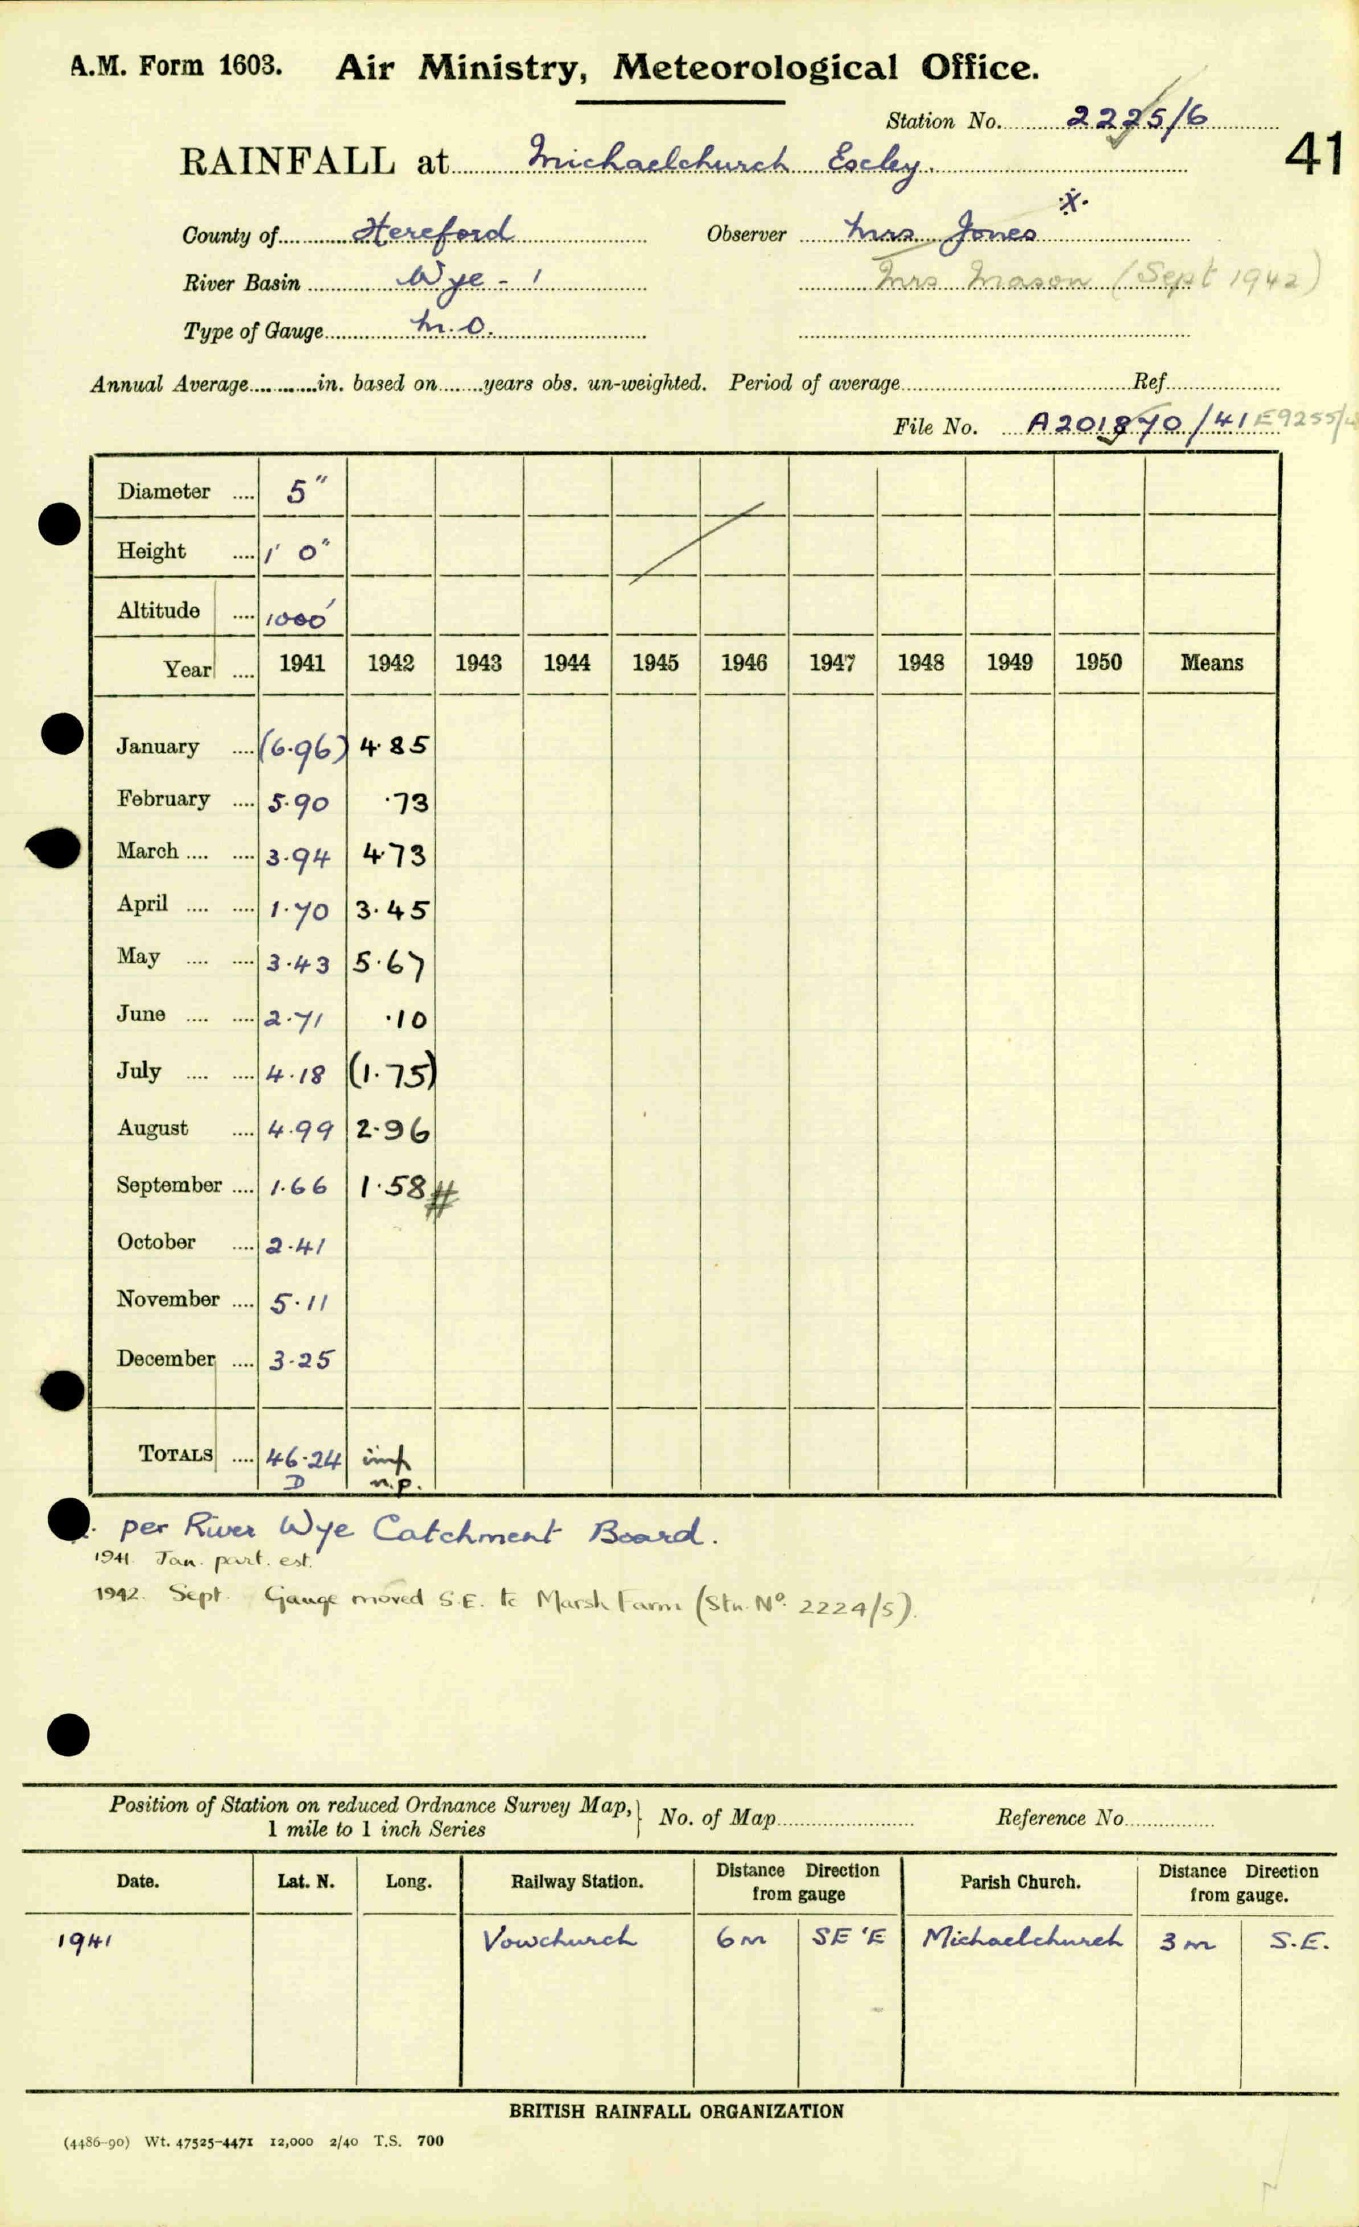 A.M. Form 1603. Air Ministry, Meteorological Office.
Station No. 2225/6
41
RAINFALL at Michaelchurch Escley.
County of Hereford Observer Mrs Jones
River Basin Wye - 1 Mrs Mason (Sept 1942)
Type of Gauge M.O.
Annual Average in. based on years obs. un-weighted. Period of average Ref
File No. A201870/41 E9255/
Diameter 5"
Height 1' 0"
Altitude 1000'
Year 1941 1942 1943 1944 1945 1946 1947 1948 1949 1950 Means
January (6.96) 4.85
February 5.90 .73
March 3.94 4.73
April 1.70 3.45
May 3.43 5.67
June 2.71 .10
July 4.18 (1.75)
August 4.99 2.96
September 1.66 1.58 #
October 2.41
November 5.11
December 3.25
TOTALS 46.24 imp
D n.p.
per River Wye Catchment Board.
1941 Jan. part. est.
1942. Sept. Gauge moved S.E. to Marsh Farm (Stn. No. 2224/5).
Position of Station on reduced Ordnance Survey Map, } No. of Map Reference No
1 mile to 1 inch Series
Date. Lat. N. Long. Railway Station. Distance Direction from gauge Parish Church. Distance Direction from gauge.
1941 Vowchurch 6m SE'E Michaelchurch 3m S.E.
BRITISH RAINFALL ORGANIZATION
(4486-90) Wt. 47525-4471 12,000 2/40 T.S. 700